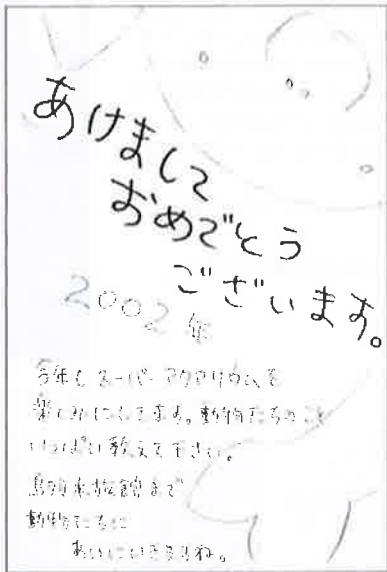 あけまして
おめでとう
ございます。
2002年
今年もスーパーアクアリウムを
楽しみにしてます。動物たちのこと
いっぱい教えて下さい。
鳥羽水族館まで
動物たちに
あいにいきますね。